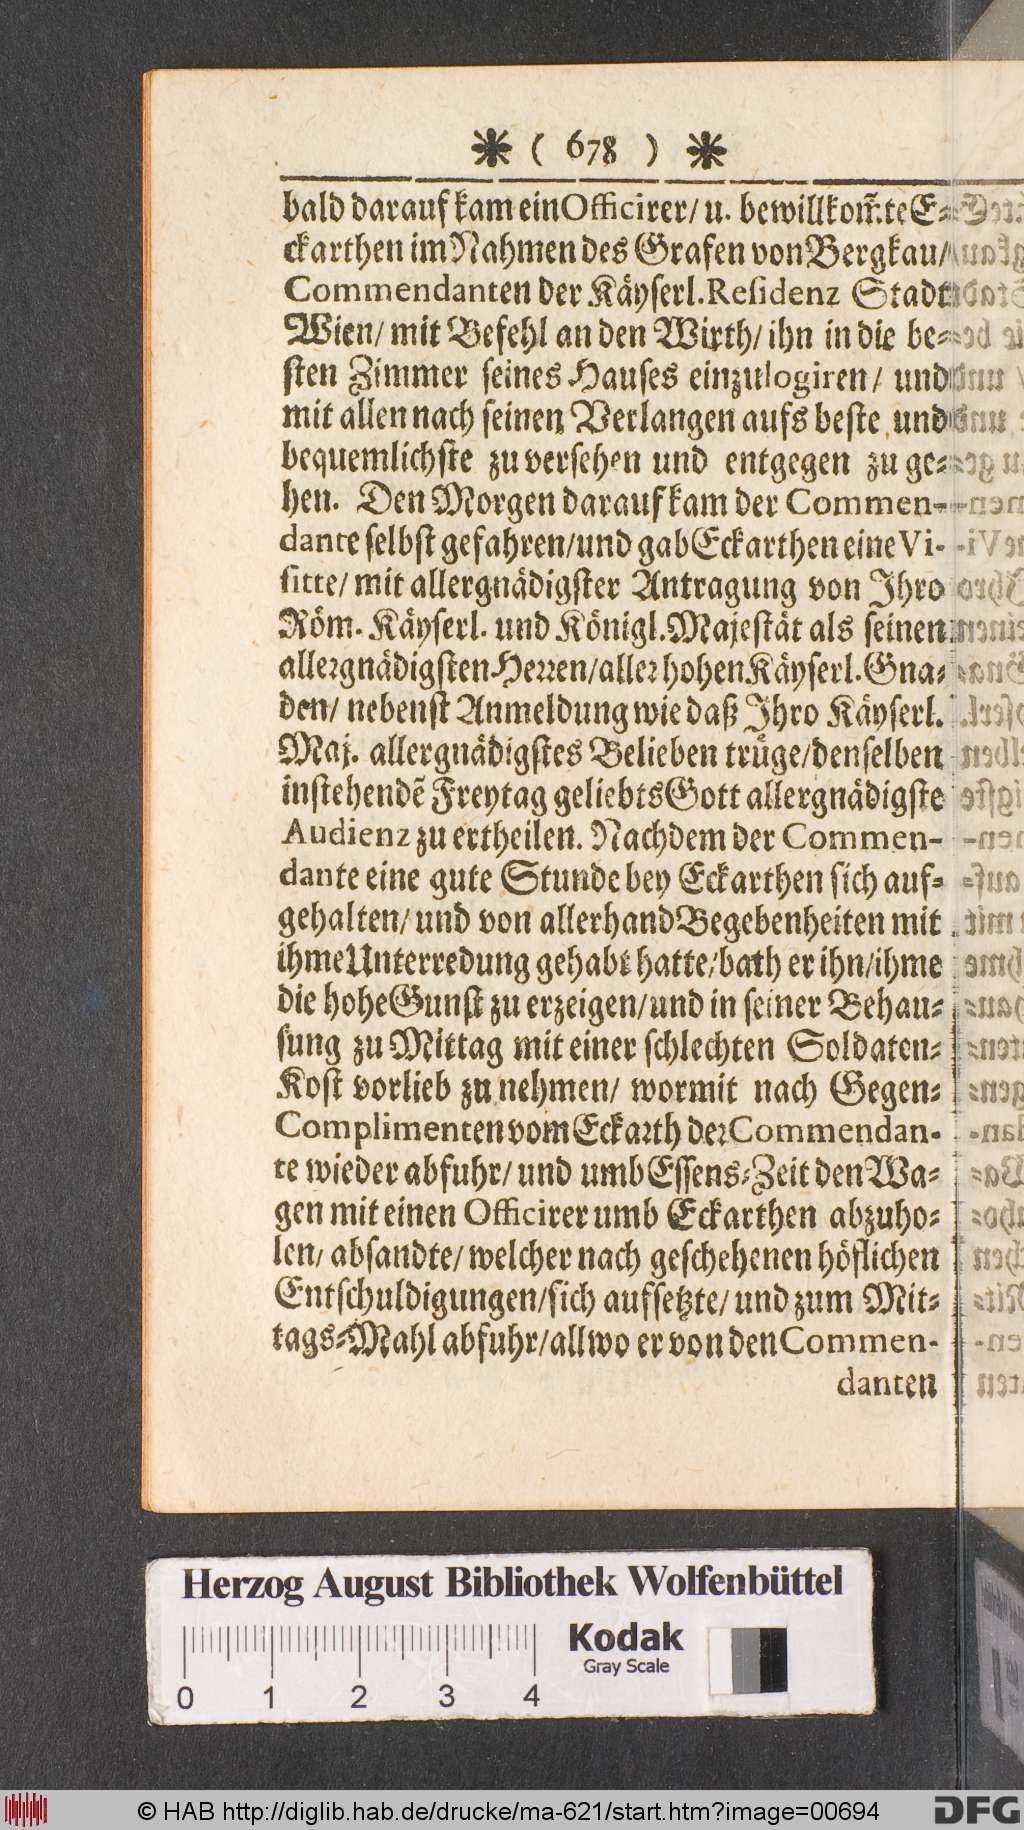 * ( 678 ) *
bald darauf kam ein Officirer/ u. bewillkom̃te E-
ckarthen im Nahmen des Grafen von Bergkau/
Commendanten der Käyserl. Residenz Stadt
Wien/ mit Befehl an den Wirth/ ihn in die be-
sten Zimmer seines Hauses einzulogiren/ und
mit allen nach seinen Verlangen aufs beste und
bequemlichste zu versehen und entgegen zu ge-
hen. Den Morgen darauf kam der Commen-
dante selbst gefahren/ und gab Eckarthen eine Vi-
sitte/ mit allergnädigster Antragung von Ihro
Röm. Käyserl. und Königl. Majestät als seinen
allergnädigsten Herren/ aller hohen Käyserl. Gna-
den/ nebenst Anmeldung wie daß Ihro Käyserl.
Maj. allergnädigstes Belieben trüge/ denselben
instehendẽ Freytag geliebts Gott allergnädigste
Audienz zu ertheilen. Nachdem der Commen-
dante eine gute Stunde bey Eckarthen sich auf-
gehalten/ und von allerhand Begebenheiten mit
ihme Unterredung gehabt hatte/ bath er ihn/ ihme
die hohe Gunst zu erzeigen/ und in seiner Behau-
sung zu Mittag mit einer schlechten Soldaten-
Kost vorlieb zu nehmen/ wormit nach Gegen-
Complimenten vom Eckarth der Commendan-
te wieder abfuhr/ und umb Essens-Zeit den Wa-
gen mit einen Officirer umb Eckarthen abzuho-
len/ absandte/ welcher nach geschehenen höflichen
Entschuldigungen/ sich aufsetzte/ und zum Mit-
tags-Mahl abfuhr/ allwo er von den Commen-
danten
Herzog August Bibliothek Wolfenbüttel
Kodak
Gray Scale
0 1 2 3 4
© HAB http://diglib.hab.de/drucke/ma-621/start.htm?image=00694
DFG